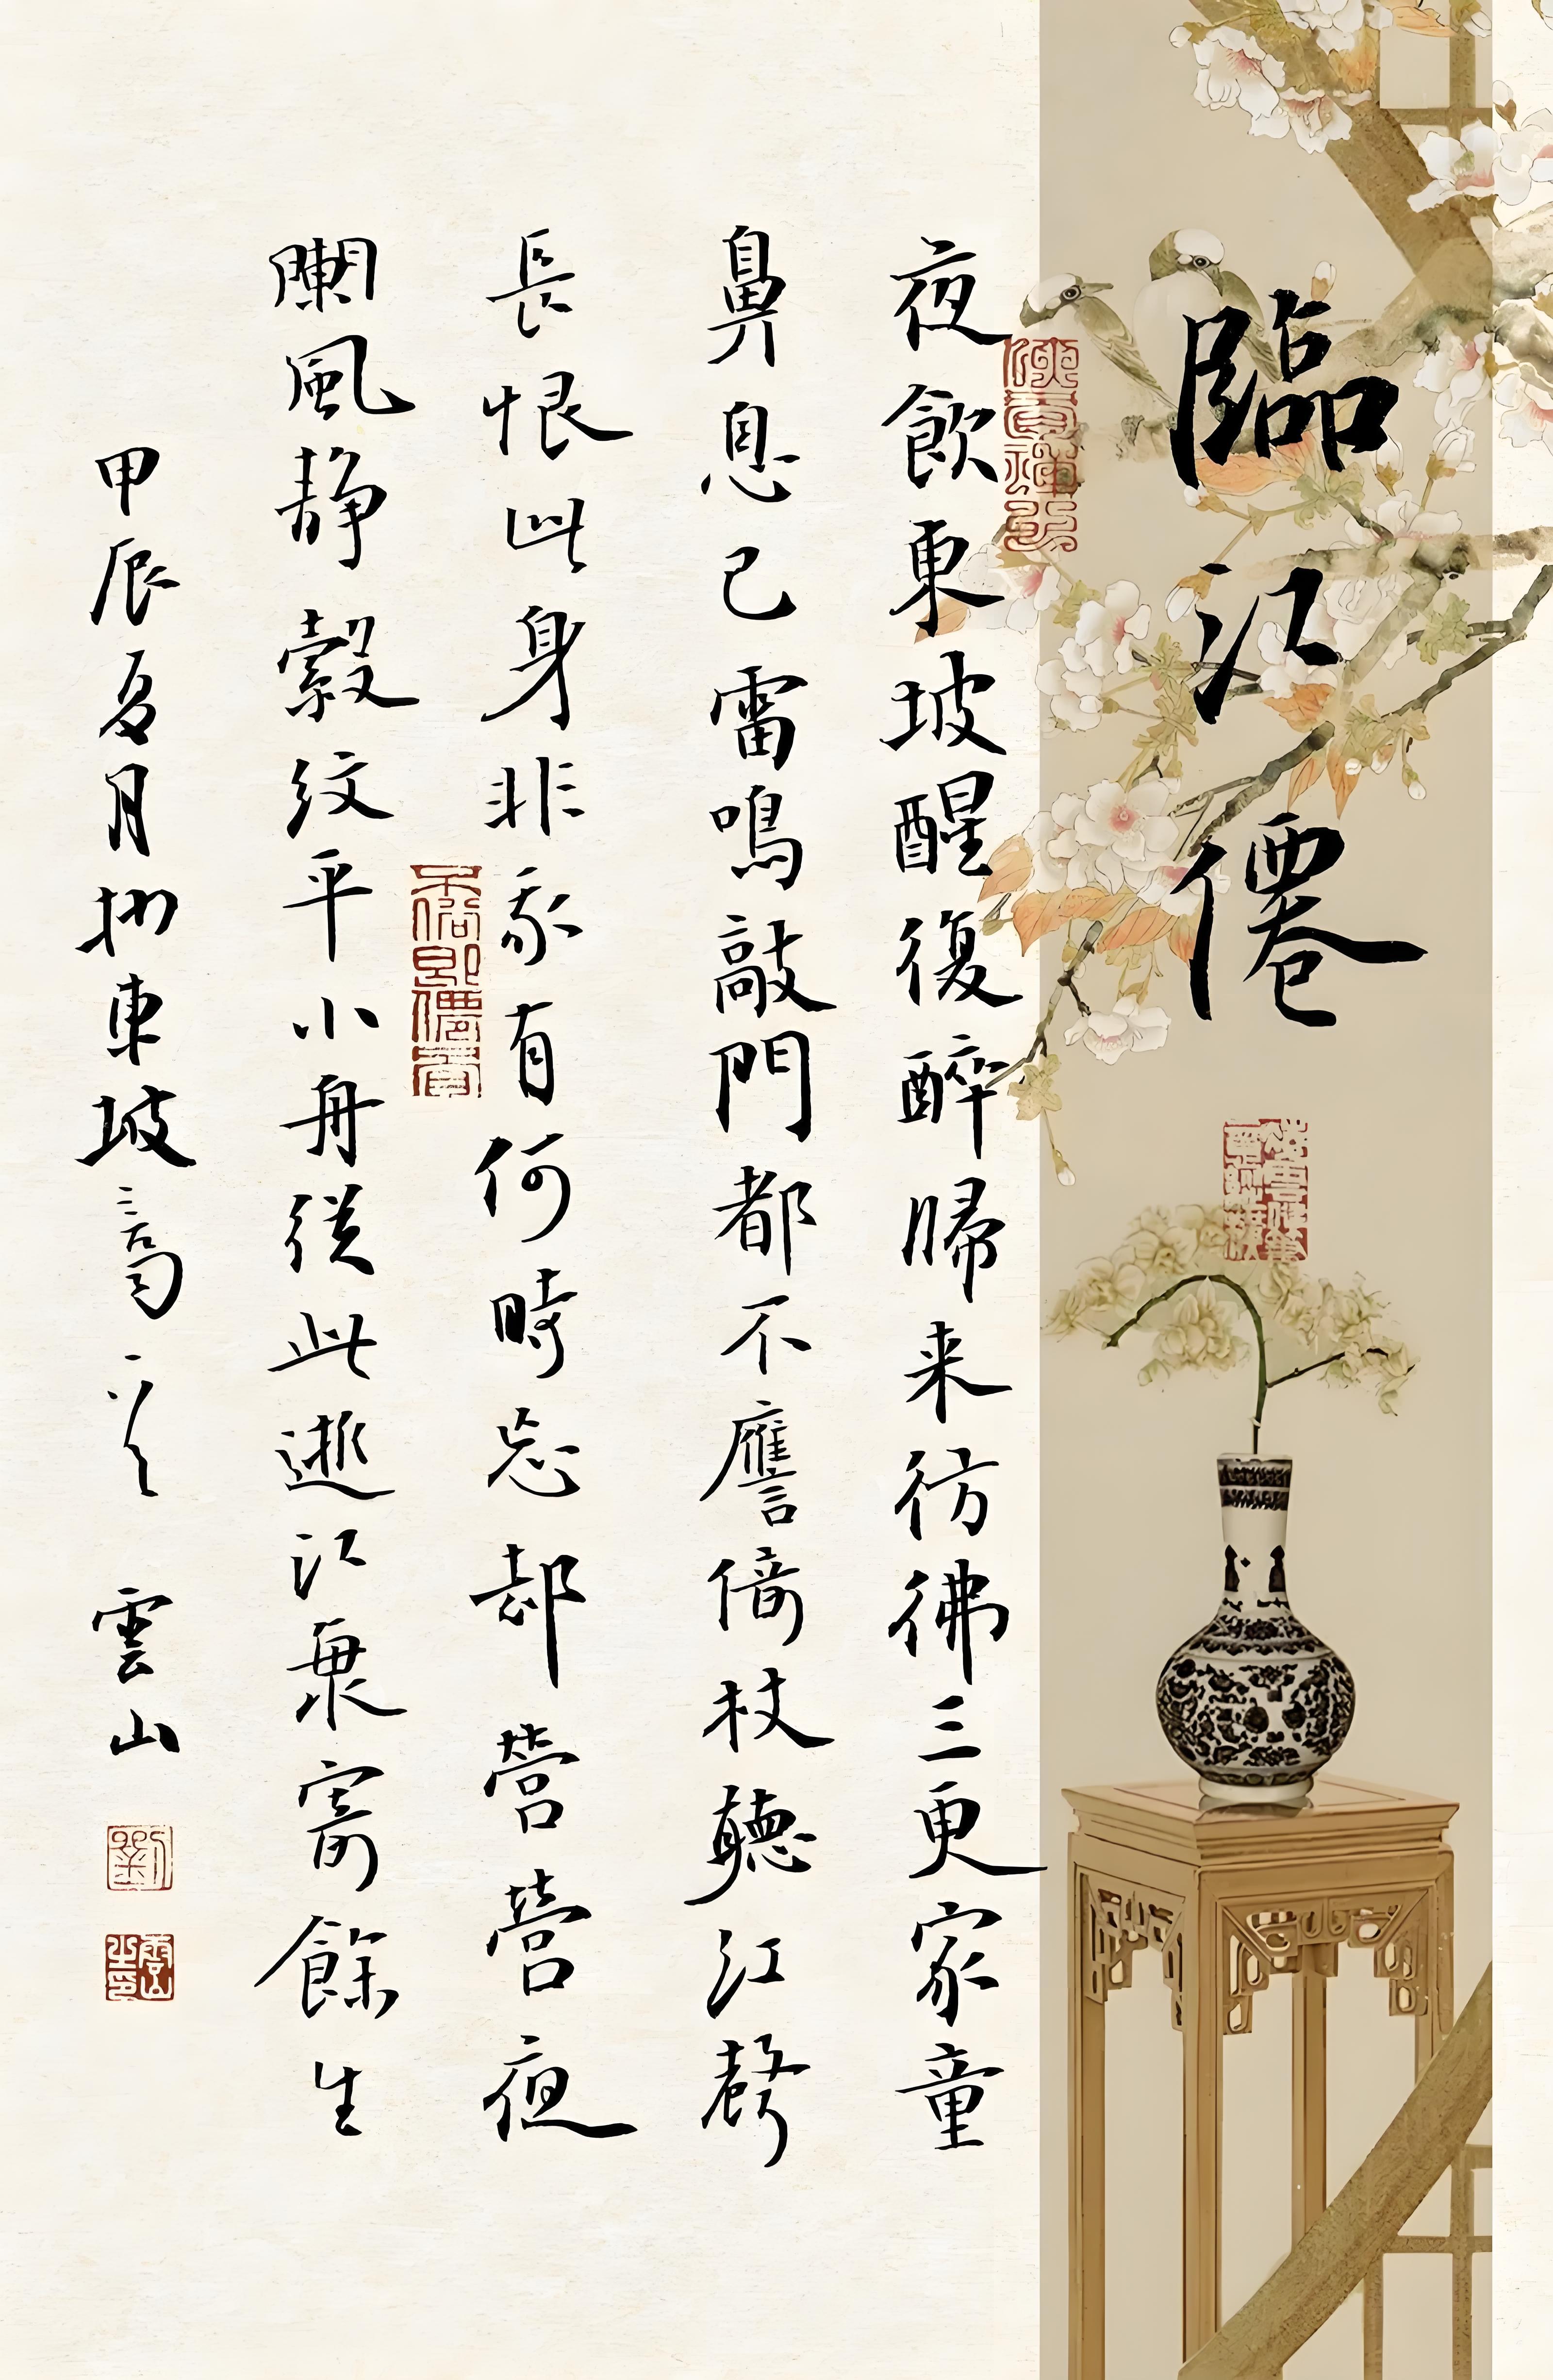 臨江僊
夜飲東坡醒復醉歸来彷彿三更家童
鼻息已雷鳴敲門都不譍倚杖聽江聲
長恨此身非我有何時忘却營營夜
闌風静縠紋平小舟從此逝江海寄餘生
甲辰夏月抄東坡詞一首 雲山
不俗即僊骨
劉
雲山之印